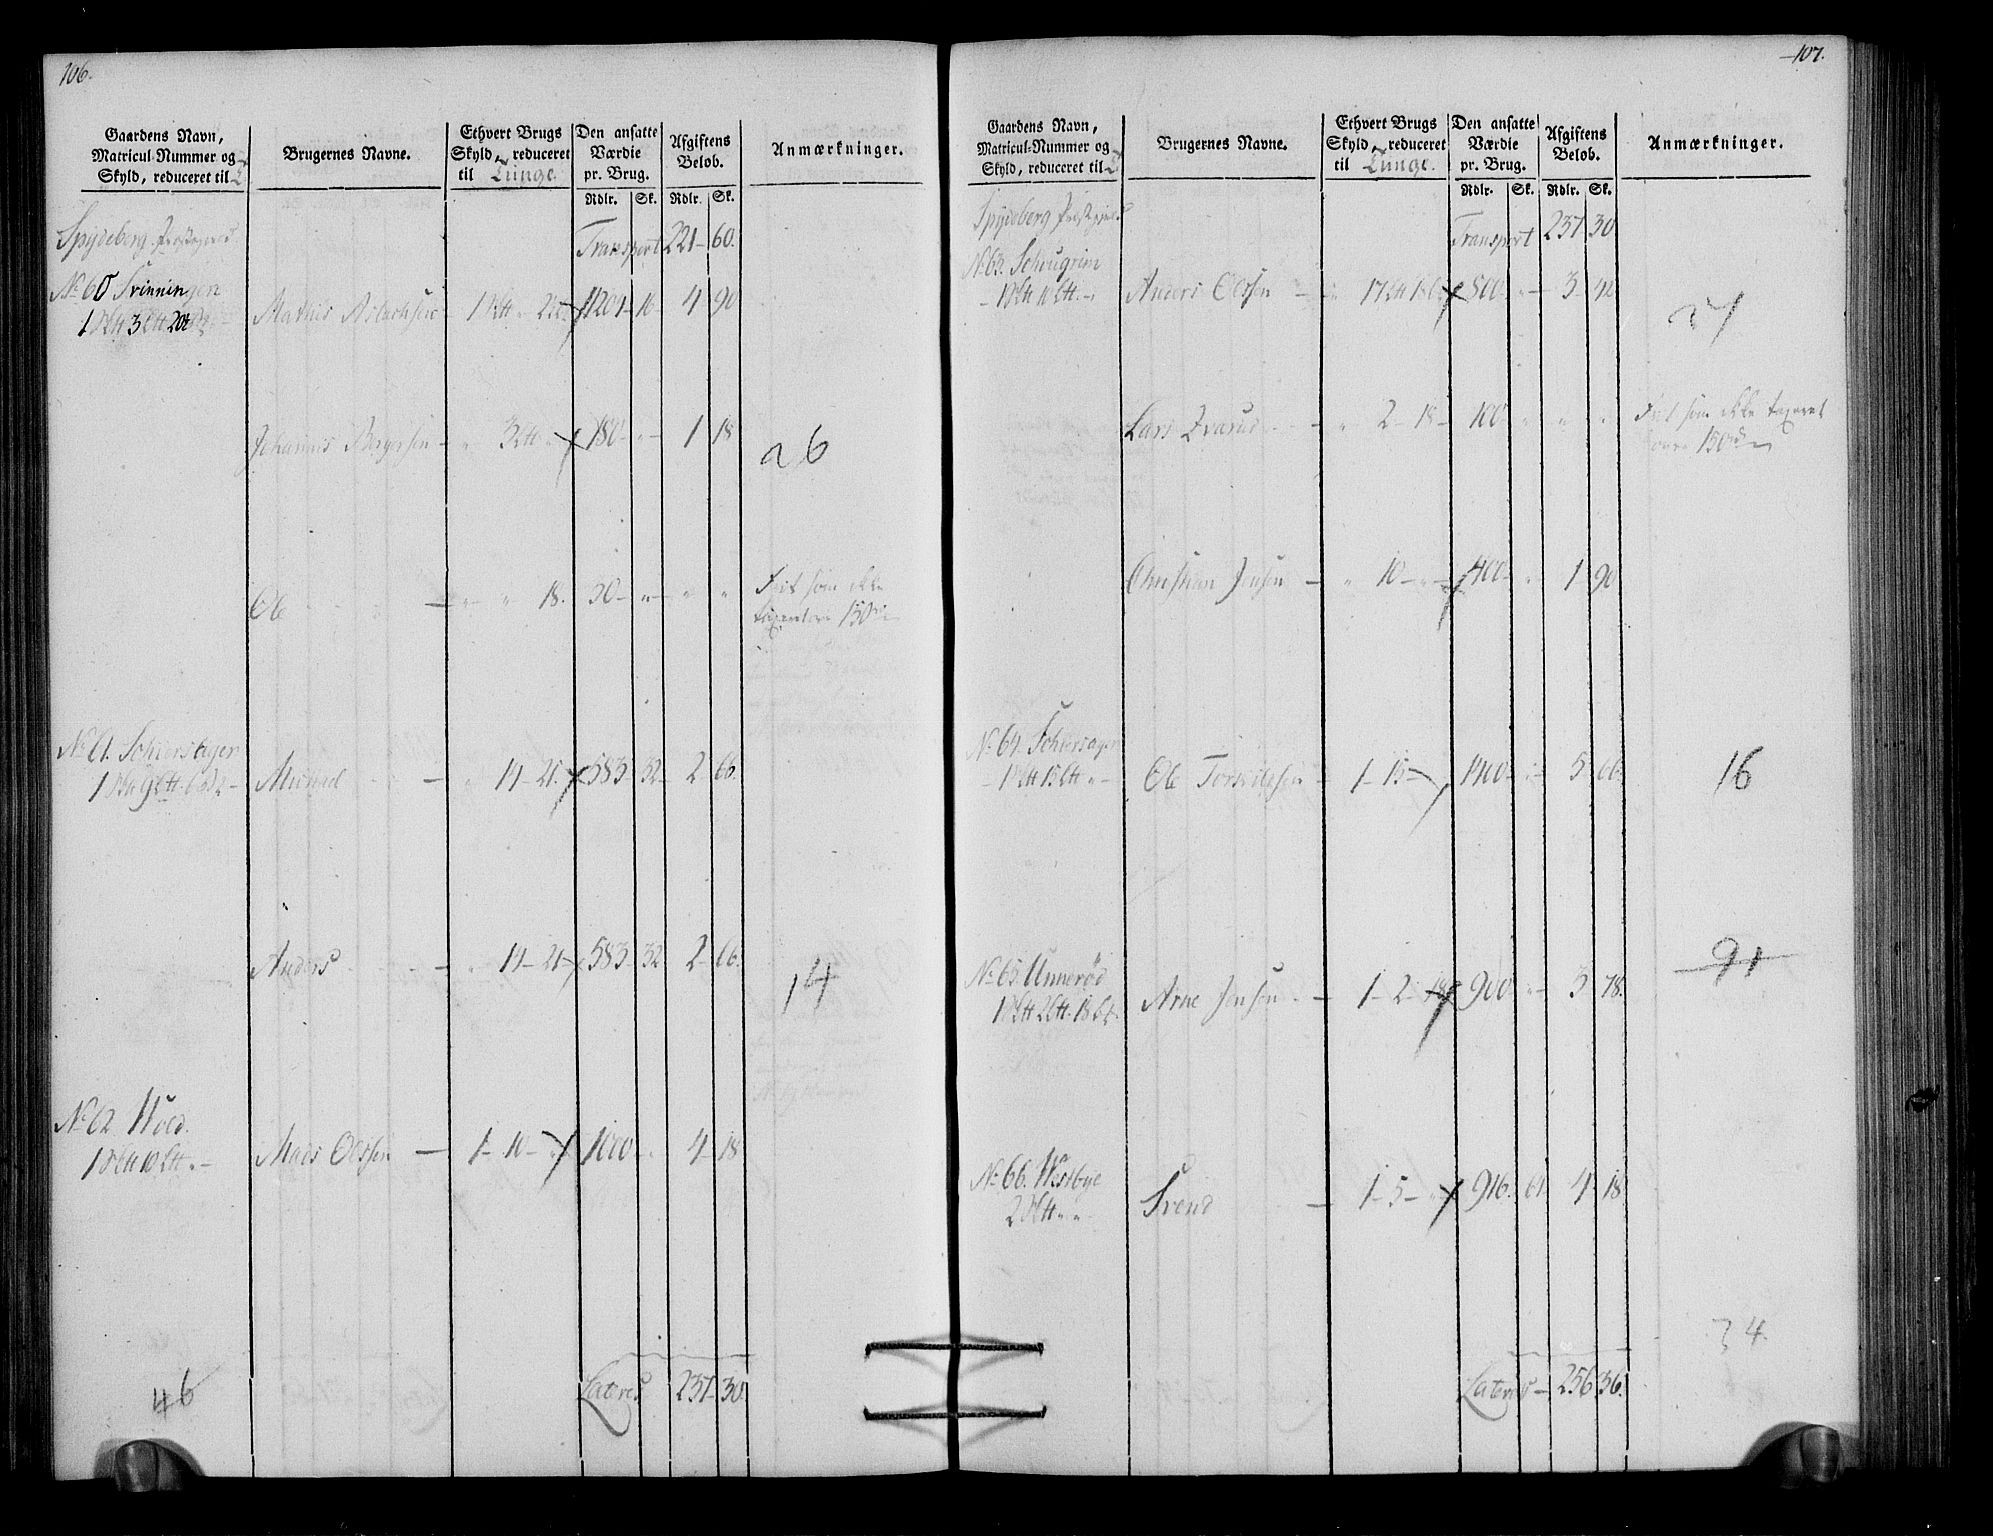 106.
Gaardens Navn,
Matricul-Nummer og
Skyld, reduceret til
Brugernes Navne.
Ethvert Brugs
Skyld, reduceret
til Tunge.
Den ansatte
Værdie
pr. Brug.
Rdlr. Sk.
Afgiftens
Beløb.
Rdlr. Sk.
Anmærkninger.
Spydeberg Præstegield
Transport 221 - 60.
No 60 Svinningen
1 3 20
Mathis 1 1201 - 16 - 4 90
Johannes Borgersen - 3 - 180 - " - 1 18
26
Ole - " " 18. 30 - " - " "
Frit som ikke
taxeret over 150
No 61. Schierstager
1 9
14 - 21 - 583 - 32 - 2 66.
Anders - 14 - 21 - 583 - 32 2 - 66.
14
No 62. Wold.
1 10
Mads Olssen - 1 - 10 - " 1000 - " 4 - 18
46
Lateres 237 - 30.
107.
Gaardens Navn,
Matricul-Nummer og
Skyld, reduceret til
Brugernes Navne.
Ethvert Brugs
Skyld, reduceret
til Tunge.
Den ansatte
Værdie
pr. Brug.
Rdlr. Sk.
Afgiftens
Beløb.
Rdlr. Sk.
Anmærkninger.
Spydeberg Præstegield
Transport 237 30
No 63. Schougrim
Anders Olssen - 17 18 800 - " - 3 - 42
Lars - " 2 - 18 - 100 " " "
Frit som ikke taxeret
over 150
Christian Jensen - " 10 - " - 400 - " 1 90
No 64. Schiersager
1 15
Ole - 1 - 15 - 1400 - " - 5 66.
16
No 65. Unnerød
1 2 18
Arne Jensen - 1 - 2 - 18 900 - " - 3 78.
91
No 66. Westbye
2
Svend - 1 - 5 - " 916. 64. 4 18
34.
Lateres - 256 36.